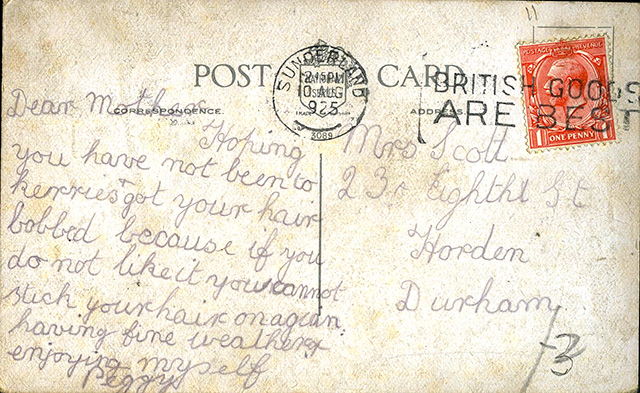 POST CARD
CORRESPONDENCE.
ADDRESS
SUNDERLAND
2 15 PM
10 AUG
1925
BRITISH GOODS
ARE BEST
POSTAGE REVENUE
ONE PENNY
Dear Mother
Hoping
you have not been to
kerries + got your hair
bobbed because if you
do not like it you cannot
stick your hair on agian
having fine weather +
enjoying myself
Peggy
Mrs Scott
23 Eighth St
Horden
Durham
3